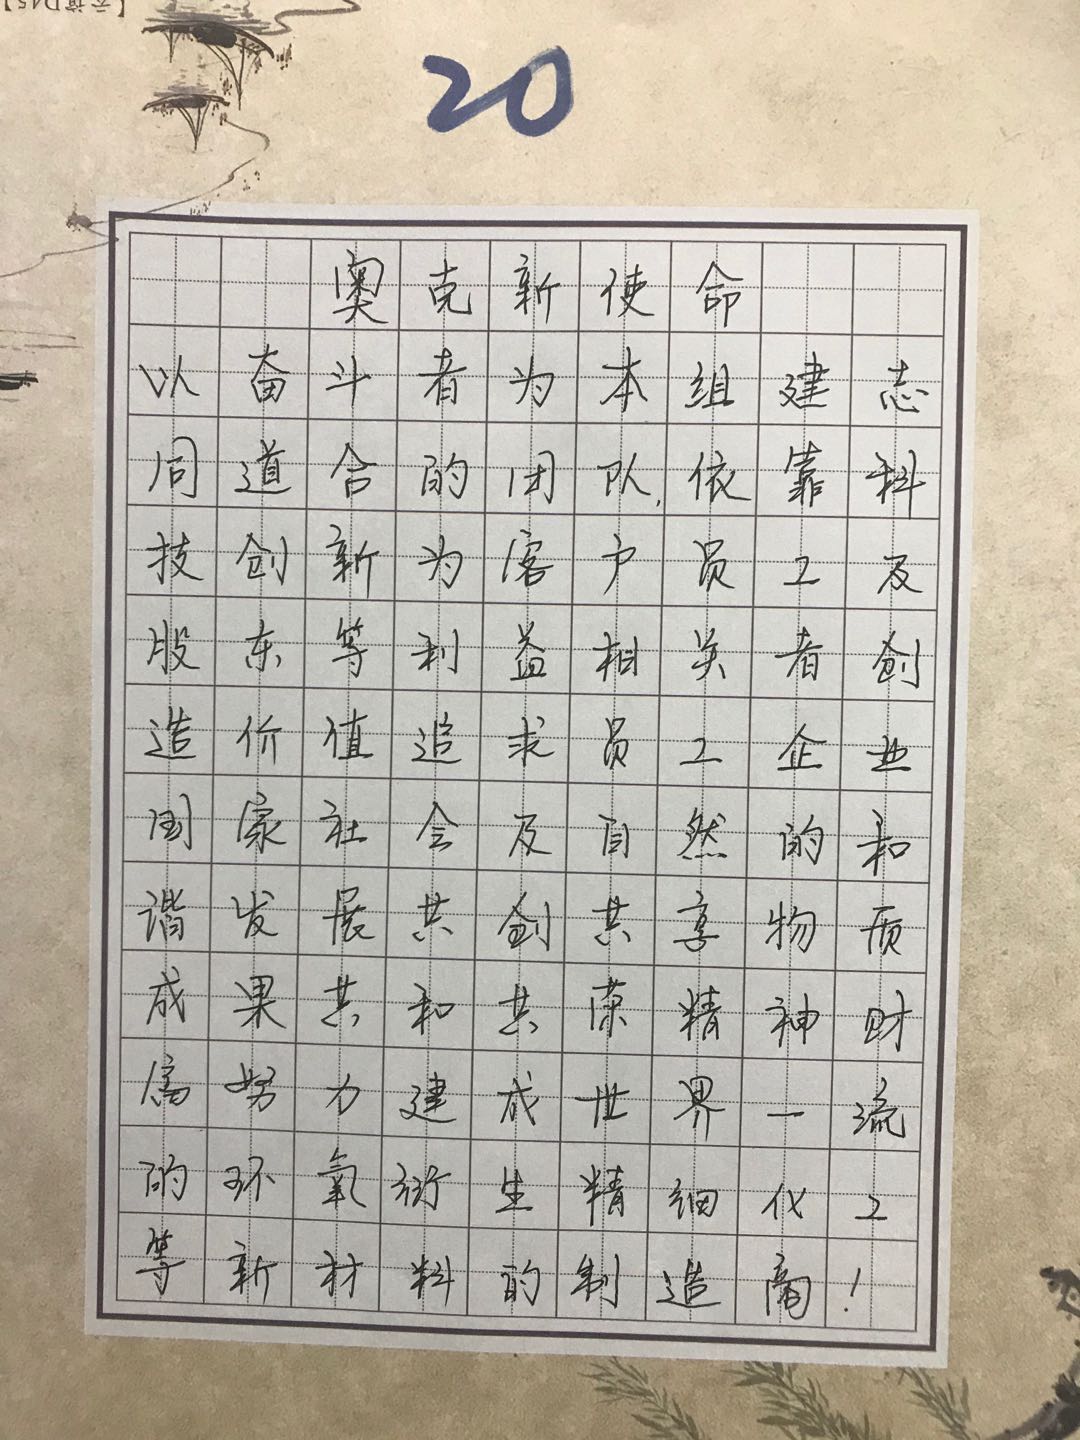 【云墙D45】
20
奥克新使命
以奋斗者为本组建志
同道合的团队,依靠科
技创新为客户员工及
股东等利益相关者创
造价值追求员工企业
国家社会及自然的和
谐发展共创共享物质
成果共和共荣精神财
富努力建成世界一流
的环氧衍生精细化工
等新材料的制造商!